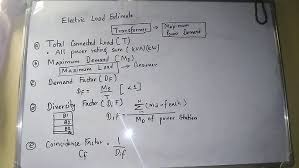 Electric Load Estimate
Transformer → Maximum Power Demand
(A) Total Connected Load (T)
• All power rating sum (kVA)(kW)
(B) Maximum Demand (MD)
Maximum Load →
(C) Demand Factor (DF)
DF = MD / T [<1]
(D) Diversity Factor (D.F)
D.F = Σ (MD of each) / MD of power station
(E) Coincidence Factor = 1 / D.F
CF